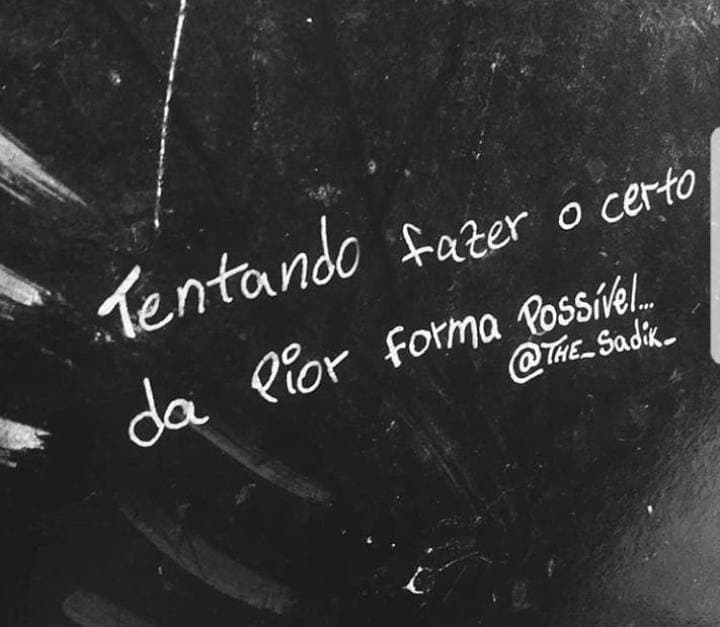 Tentando fazer o certo
da Pior forma Possível...
@THE_Sadik_